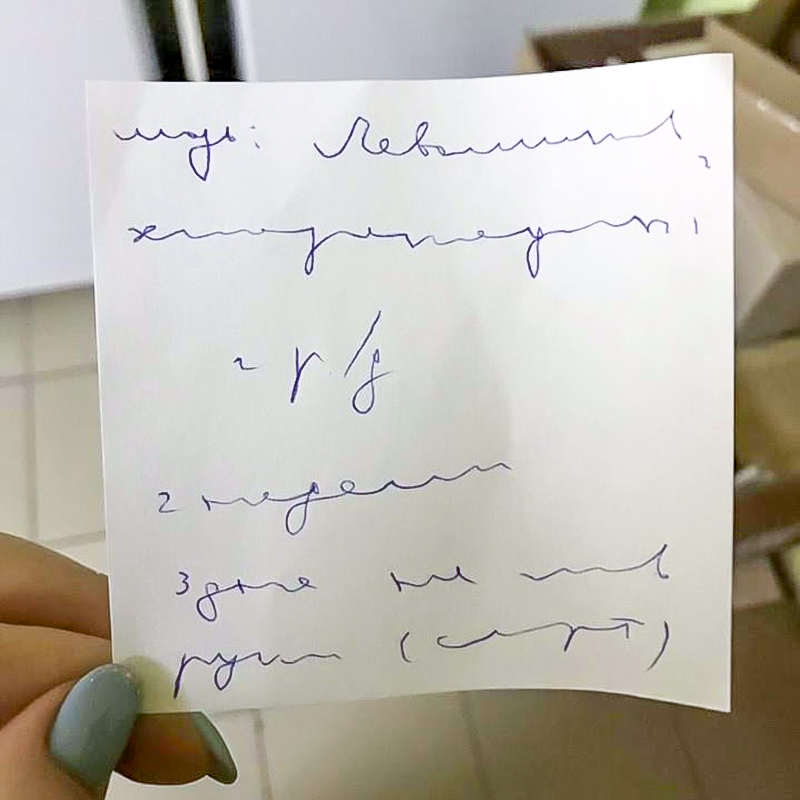 мазь: Левомеколь,
хлоргексидин
2 р./д
2 недели
3 дня не мыть
руки (спирт)